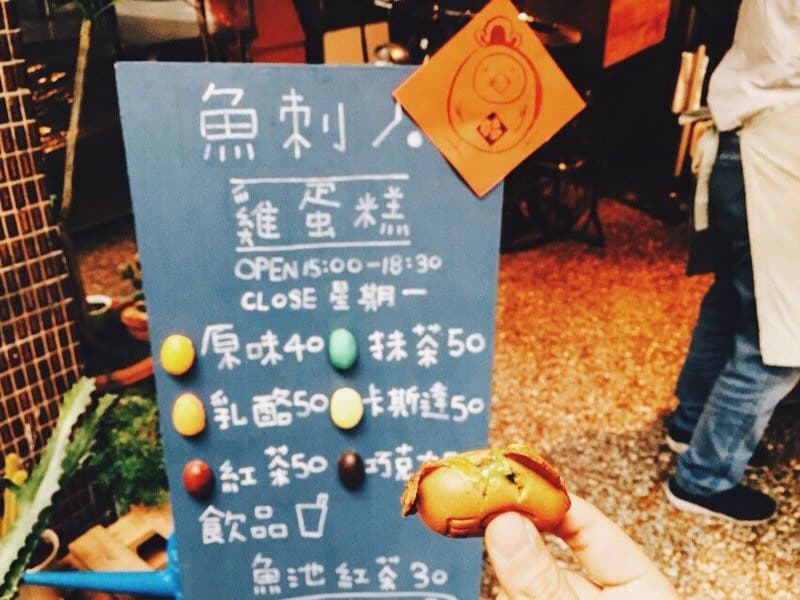 魚刺人
雞蛋糕
OPEN 15:00-18:30
CLOSE 星期一
原味40 抹茶50
乳酪50 卡斯達50
紅茶50 巧克
飲品
魚池紅茶30